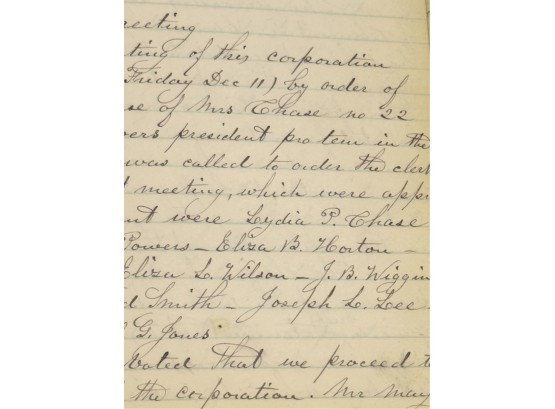 eeting
ting of this corporation
Friday Dec 11) by order of
se of Mrs Chase no 22
wers president protem in the
was called to order the cler
t meeting, which were appr
nt were Lydia P. Chase
Powers - Eliza B. Horton -
Eliza L. Wilson - J. B. Wiggin
d Smith - Joseph L. Lee -
G. Jones
voted That we proceed t
the corporation. Mr May